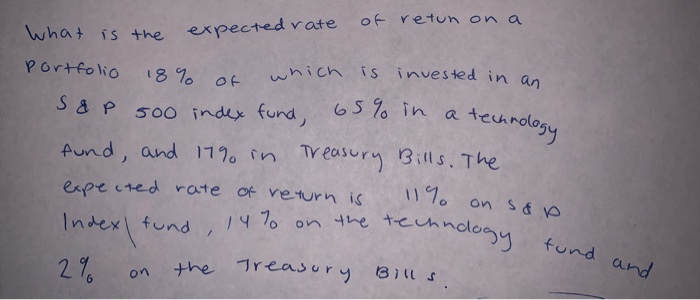 What is the expected rate of retun on a
portfolio 18% of which is invested in an
S & P 500 index fund, 65% in a technology
fund, and 17% in Treasury Bills. The
expected rate of return is 11% on S & P
Index fund, 14% on the technology fund and
2% on the Treasury Bills.